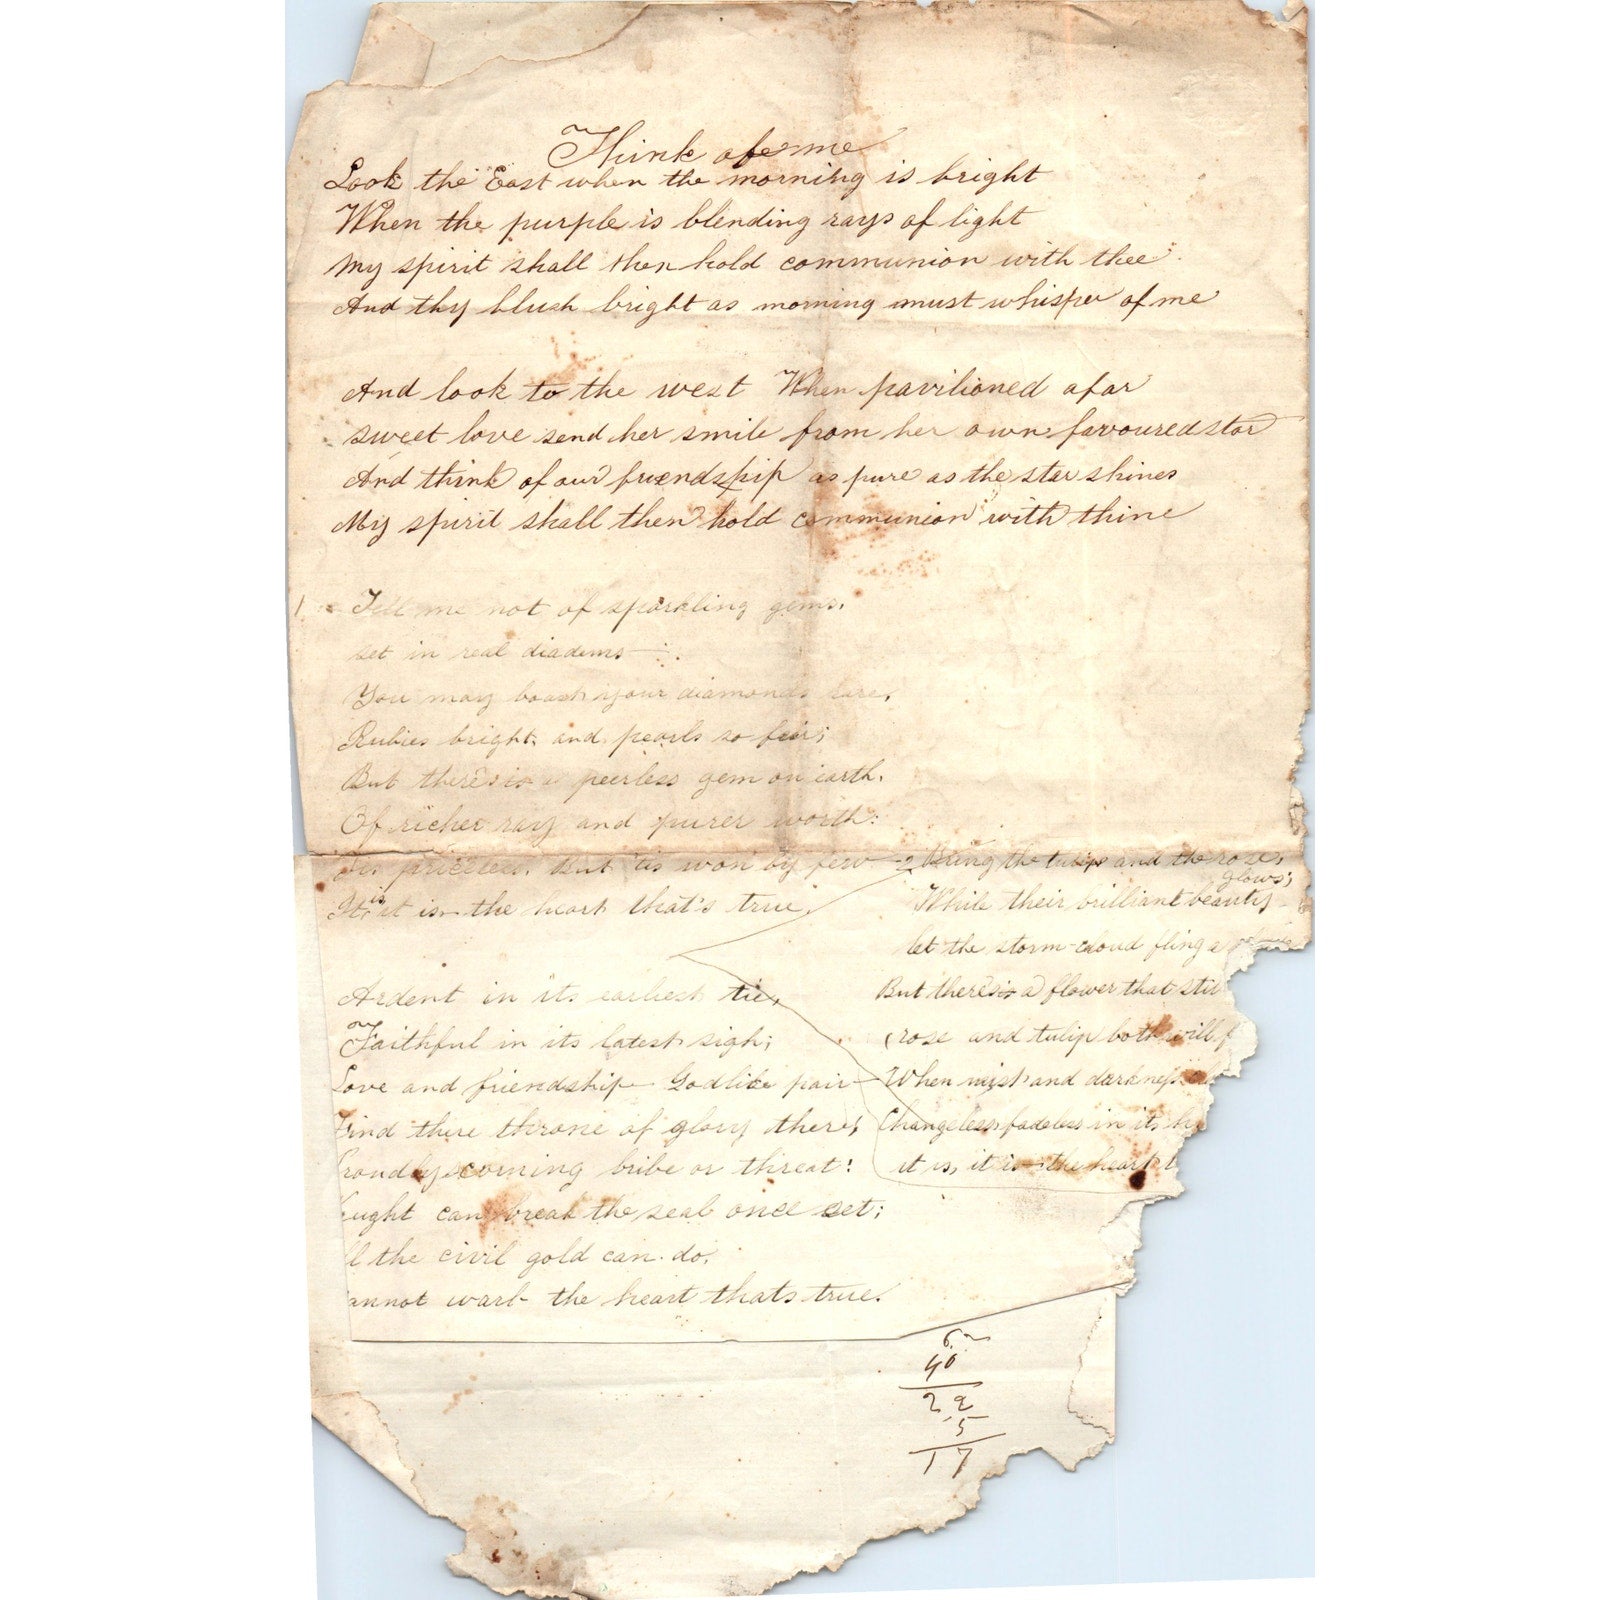 Think of me
Look the East when the morning is bright
When the purple is blending rays of light
My spirit shall then hold communion with thee
And thy blush bright as morning must whisper of me
And look to the west When pavilioned afar
sweet love send her smile from her own favoured star
And think of our friendship as pure as the star shines
My spirit shall then hold communion with thine
1 Tell me not of sparkling gems,
set in real diadems
You may boast your diamonds rare,
Rubies bright, and pearls so fair;
But there's is a peerless gem on earth,
Of richer ray and purer worth:
priceless, But 'tis won by few
It is, it is the heart that's true,
2 Bring the tulip and the rose,
While their brilliant beauty glows;
let the storm-cloud fling a
But there's is a flower that stil
rose and tulip both will f
When mist and darkness
Changeless fadeless in its h
it is, it is the heart t
Ardent in its earliest tie,
Faithful in its latest sigh;
Love and friendship Godlike pair
Find there throne of glory there,
roudly scorning bribe or threat!
ught can break the seal once set;
ll the civil gold can do,
annot warb the heart thats true.
62
40
22
5
17